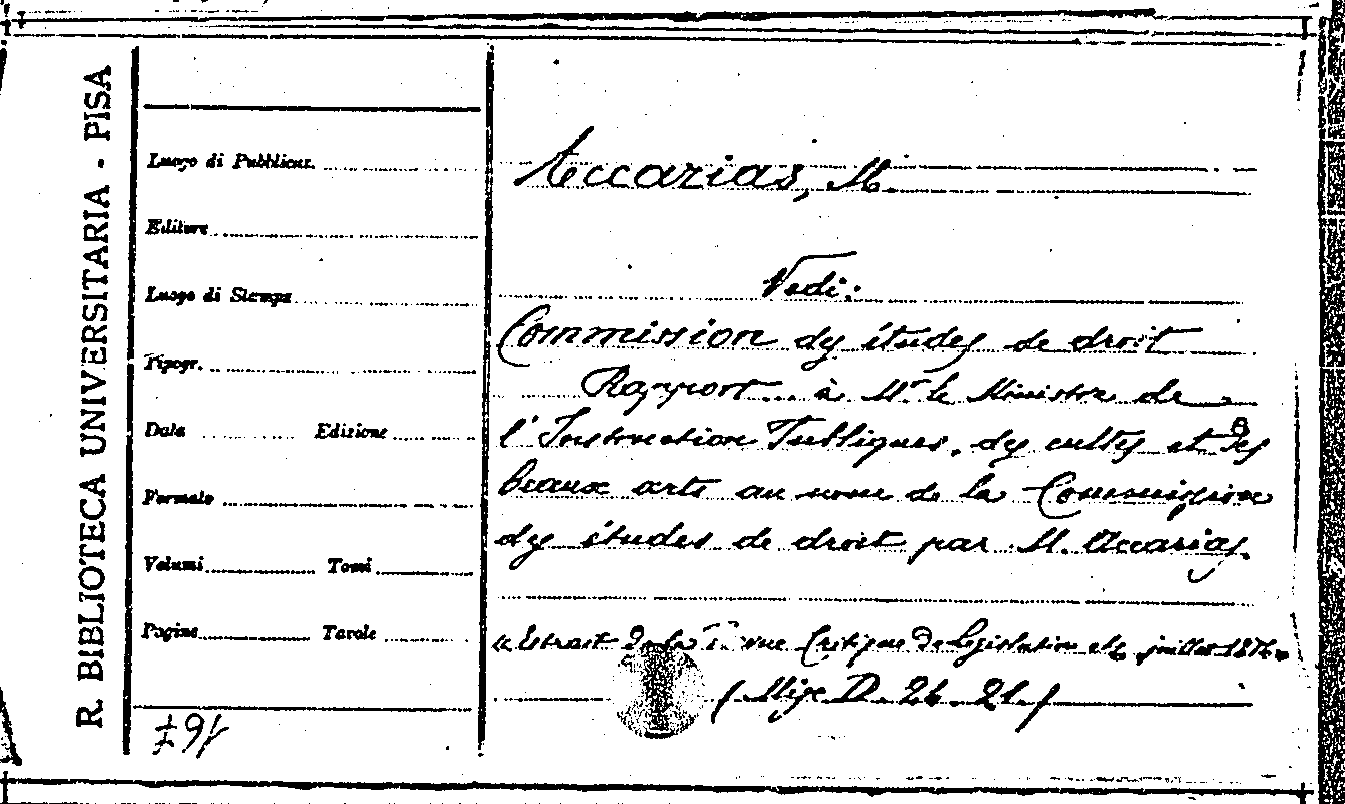 R. BIBLIOTECA UNIVERSITARIA - PISA
Luogo di Pubblicaz.
Editore
Luogo di Stampa
Tipogr.
Data Edizione
Formato
Volumi Tomi
Pagine Tavole
Accarias, M.
Vedi:
Commission des études de droit
Rapport... à Mr. le Ministre de
l'Instruction Publiques, des cultes et des
beaux arts au nom de la Commission
des études de droit par M. Accarias.
"Extrait de la Revue Critique de Législation etc, juillet 1876"
(Misc. D. 24. 21.)